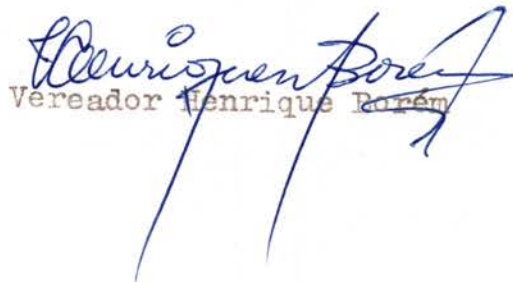 Henrique Borém
Vereador Henrique Borém